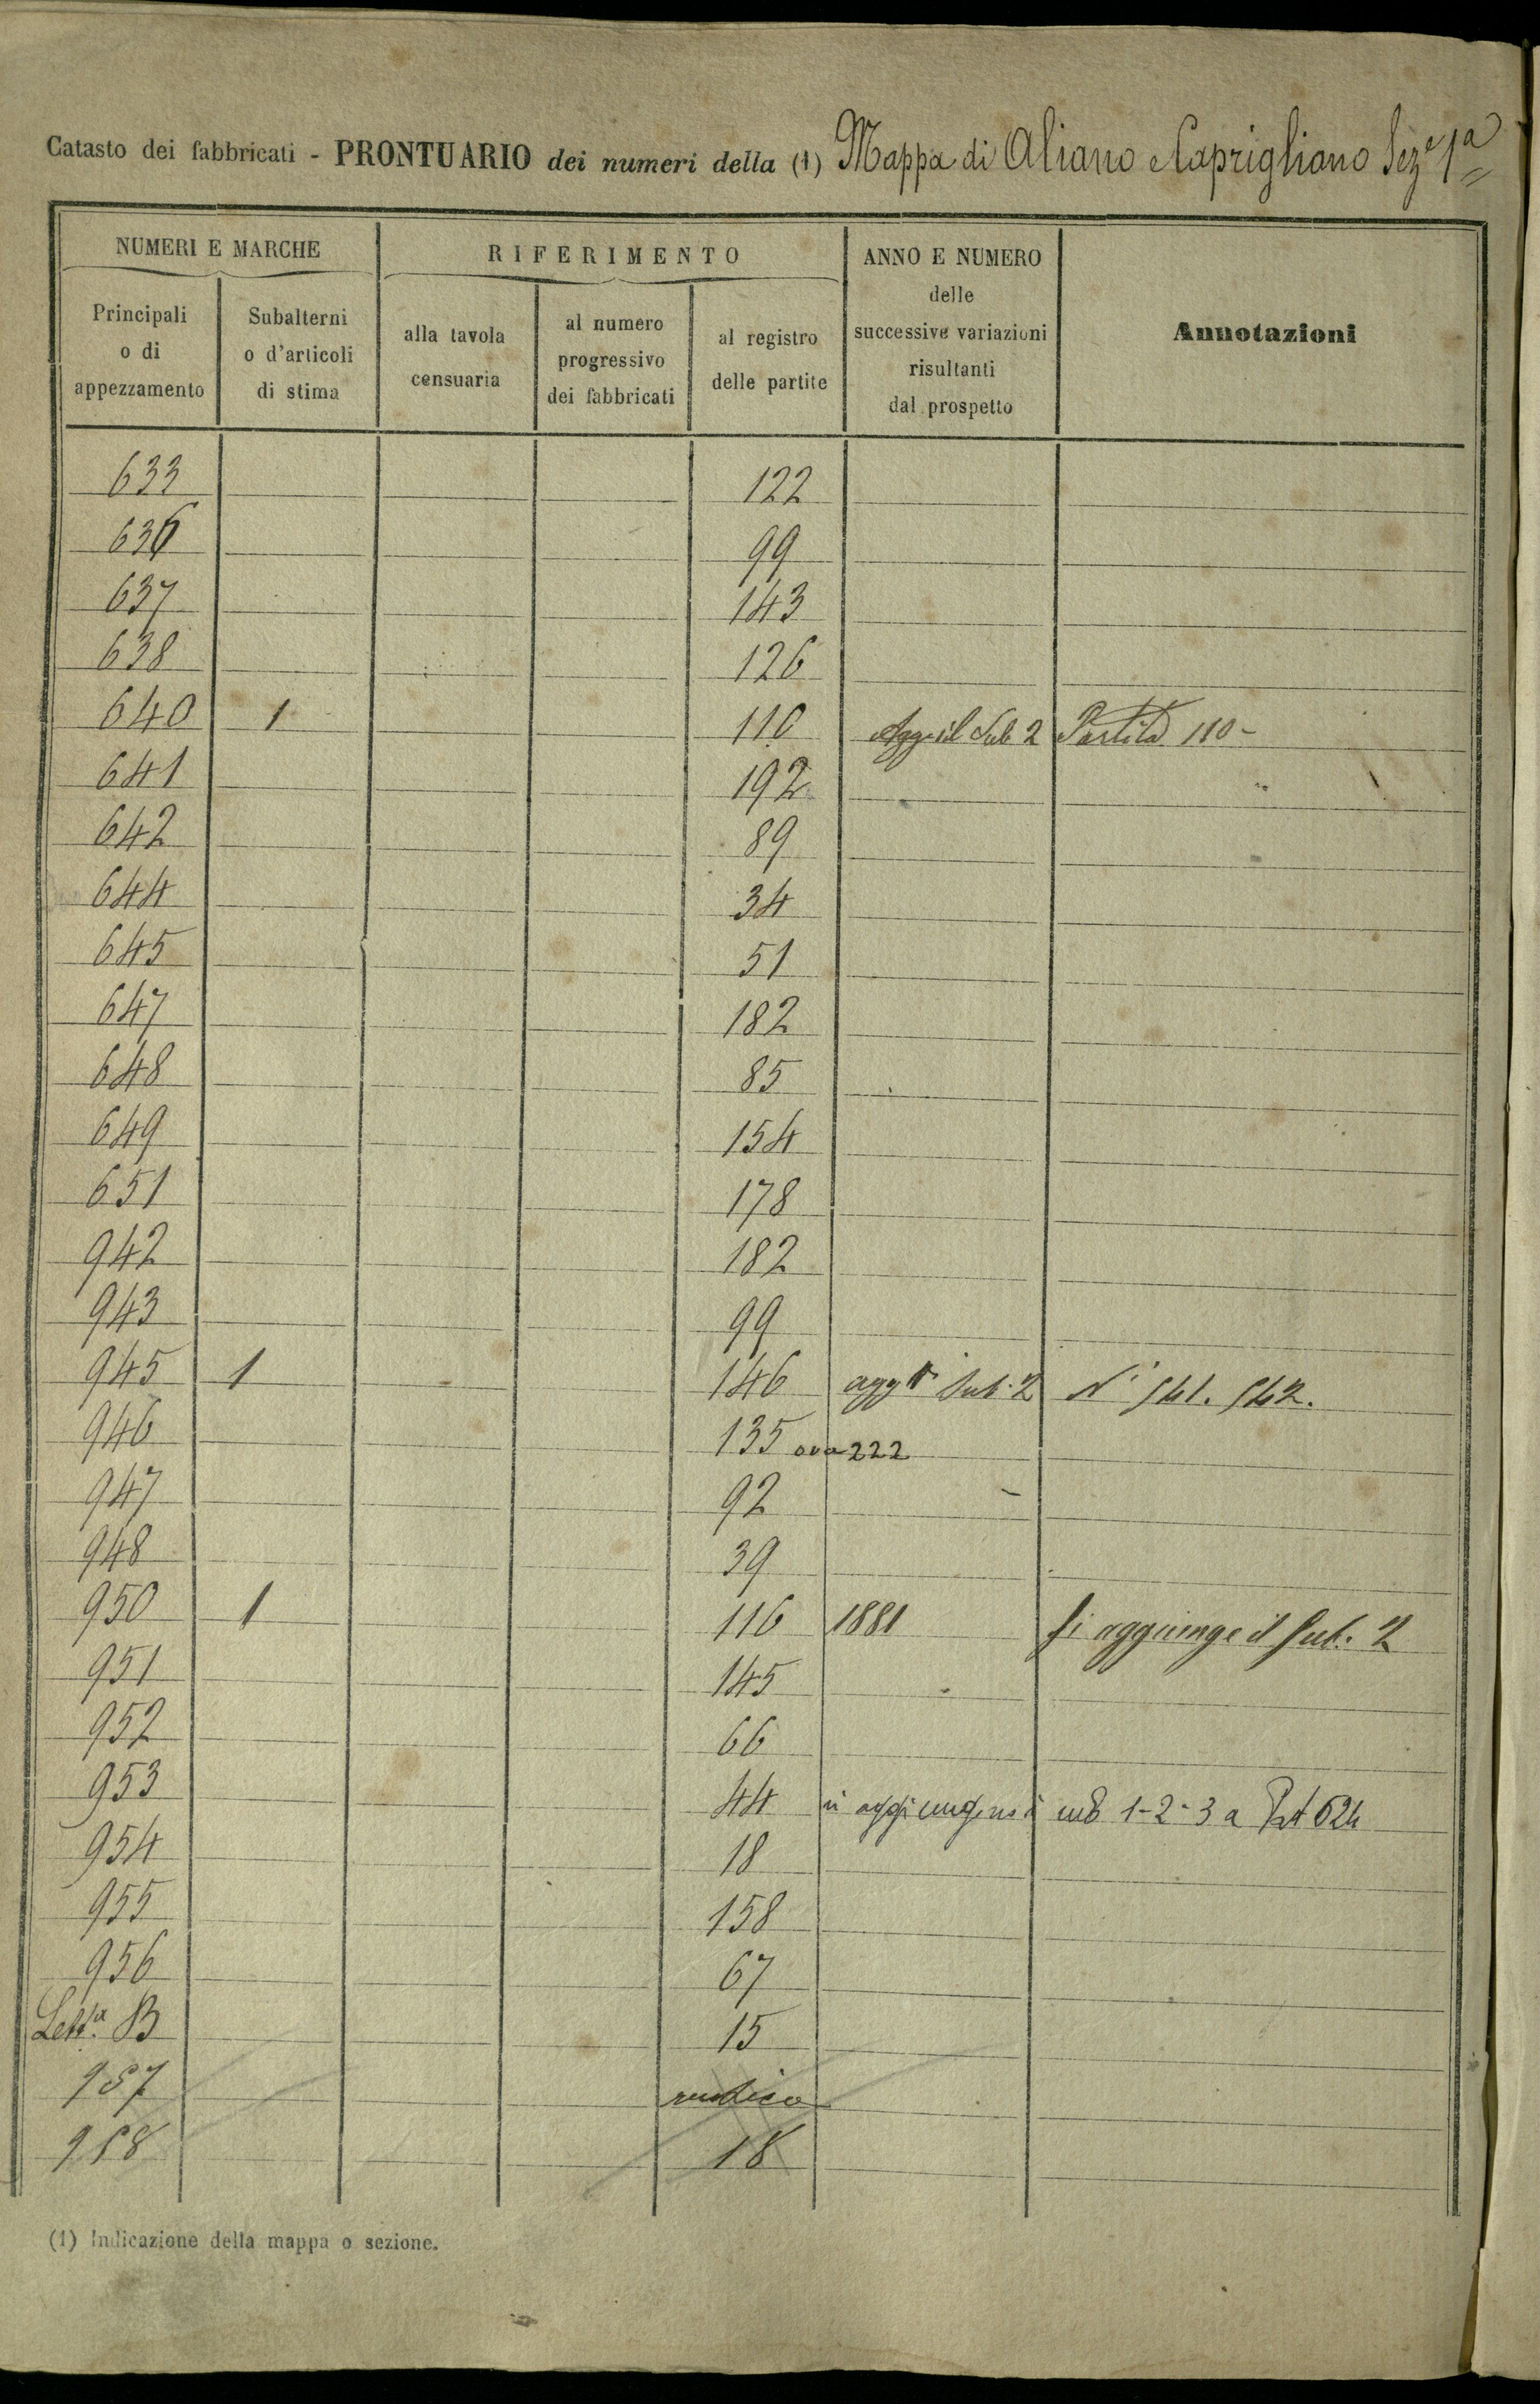 Catasto dei fabbricati - PRONTUARIO dei numeri della (1) Mappa di Aliano Caprigliano Sez.e 1a
NUMERI E MARCHE
RIFERIMENTO
ANNO E NUMERO
delle
successive variazioni
risultanti
dal prospetto
Annotazioni
Principali
o di
appezzamento
Subalterni
o d'articoli
di stima
alla tavola
censuaria
al numero
progressivo
dei fabbricati
al registro
delle partite
633 122
636 99
637 143
638 126
640 1 110 Agg. il Sub 2 Partita 110 -
641 192
642 89
644 34
645 51
647 182
648 85
649 154
651 178
942 182
943 99
945 1 146 agg Sub. 2 N° 541. 542.
946 135 ora 222
947 92
948 39
950 1 116 1881 Si aggiunge il Sub. 2
951 145
952 66
953 44 si aggiungono i sub 1-2-3 a Part 624
954 18
955 158
956 67
Lett.a B 15
957 rustico
958 18
(1) Indicazione della mappa o sezione.